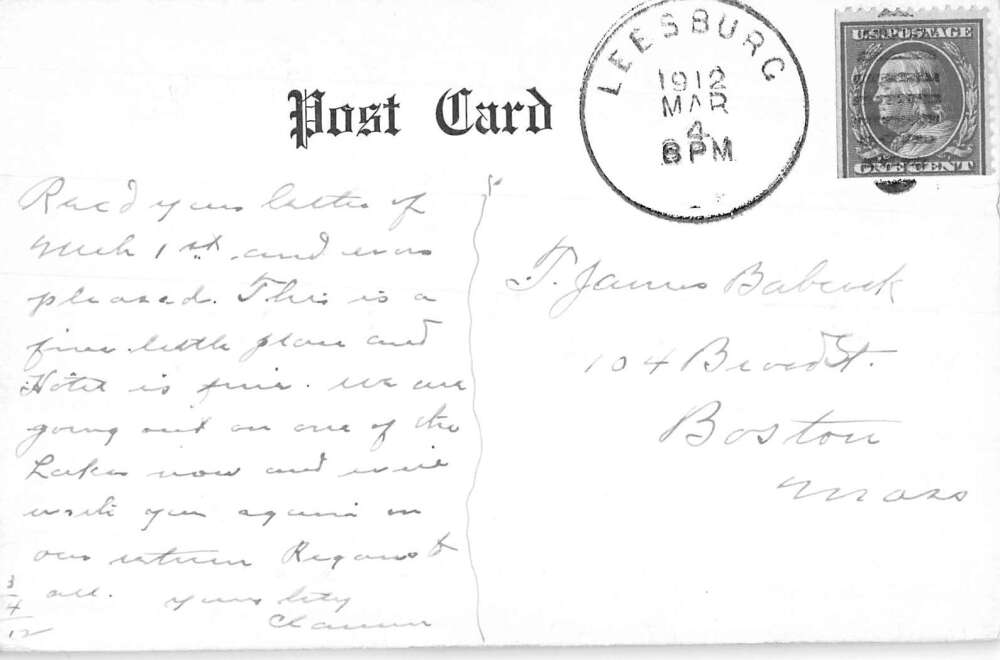 Post Card
LEESBURG
1912
MAR
4
8 PM
U.S. POSTAGE
ONE CENT
Recd your letter of
Mch 1st, and was
pleased. This is a
fine little place and
Hotel is fine. We are
going out on one of the
Lakes now and will
write you again on
our return Regards to
all. Yours
3/4/12
T. James Babcock
104 Broad St.
Boston
Mass